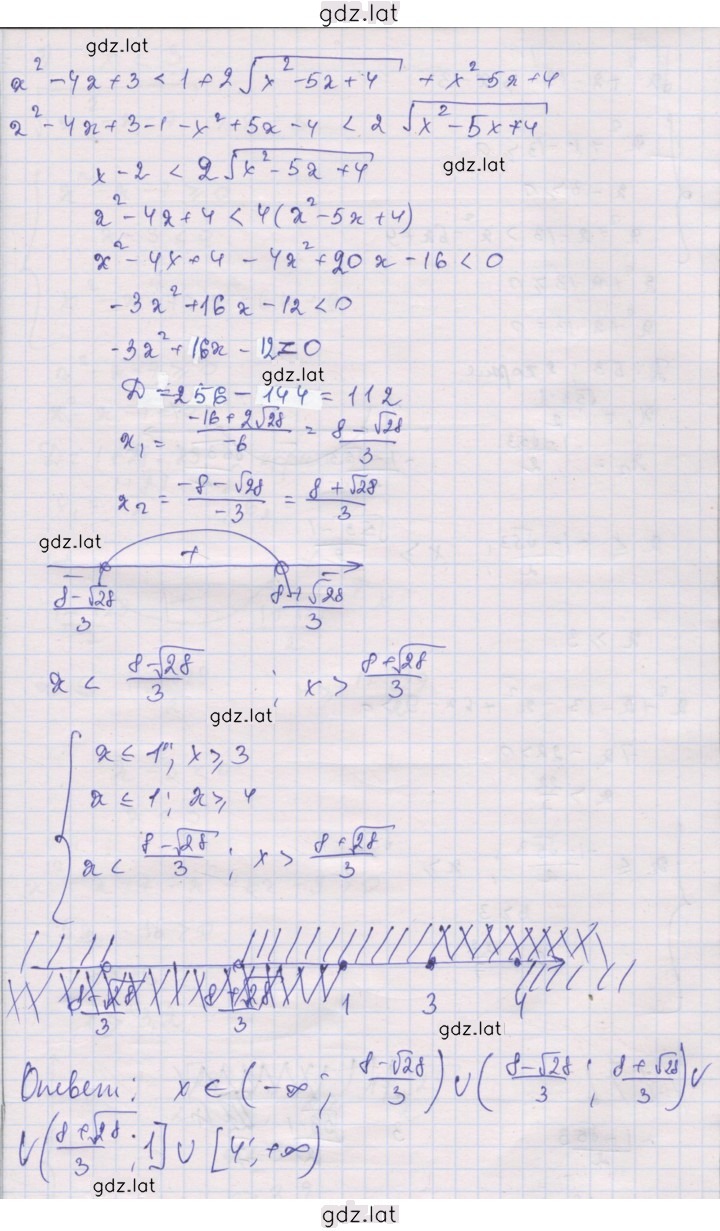 gdz.lat
gdz.lat
x² - 4x + 3 < 1 + 2√(x² - 5x + 4) + x² - 5x + 4
x² - 4x + 3 - 1 - x² + 5x - 4 < 2 √(x² - 5x + 4)
gdz.lat
x - 2 < 2√(x² - 5x + 4)
x² - 4x + 4 < 4(x² - 5x + 4)
x² - 4x + 4 - 4x² + 20x - 16 < 0
-3x² + 16x - 12 < 0
-3x² + 16x - 12 = 0
gdz.lat
D = 256 - 144 = 112
x₁ = (-16 + 2√28)/-6 = (8 - √28)/3
x₂ = (-8 - √28)/-3 = (8 + √28)/3
gdz.lat
- + -
(8 - √28)/3 (8 + √28)/3
x < (8 - √28)/3 ; x > (8 + √28)/3
gdz.lat
{ x ≤ 1; x ≥ 3
x ≤ 1; x ≥ 4
x < (8 - √28)/3 ; x > (8 + √28)/3
(8 - √28)/3 (8 + √28)/3 1 3 4
gdz.lat
Ответ: x ∈ (-∞; (8 - √28)/3) ∪ ((8 - √28)/3 ; (8 + √28)/3) ∪
∪ ((8 + √28)/3 ; 1] ∪ [4; +∞)
gdz.lat
gdz.lat